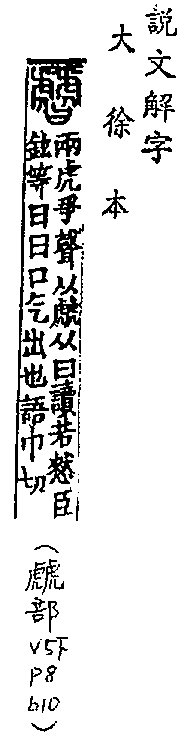 説文解字
大徐本
兩虎爭聲从虤从曰讀若憖臣
鉉等曰曰口气出也語巾切
（虤部
V5下
P8
b10）